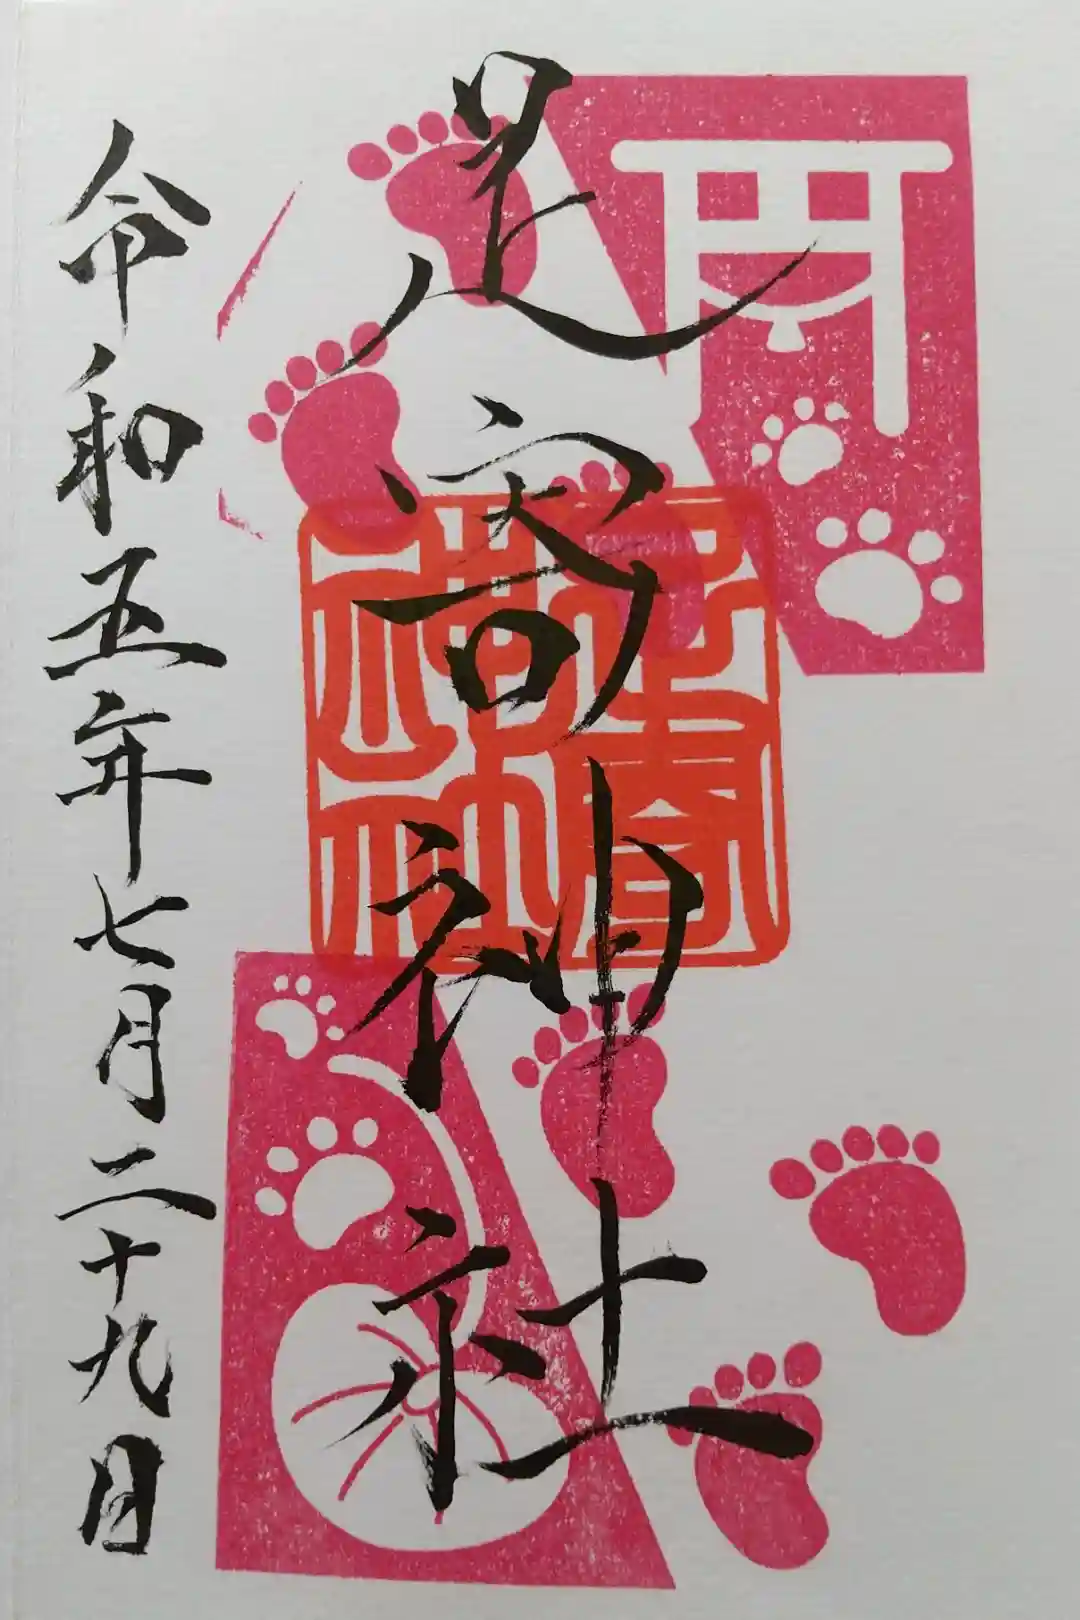 足寄神社
足寄
神社
令和五年七月二十九日